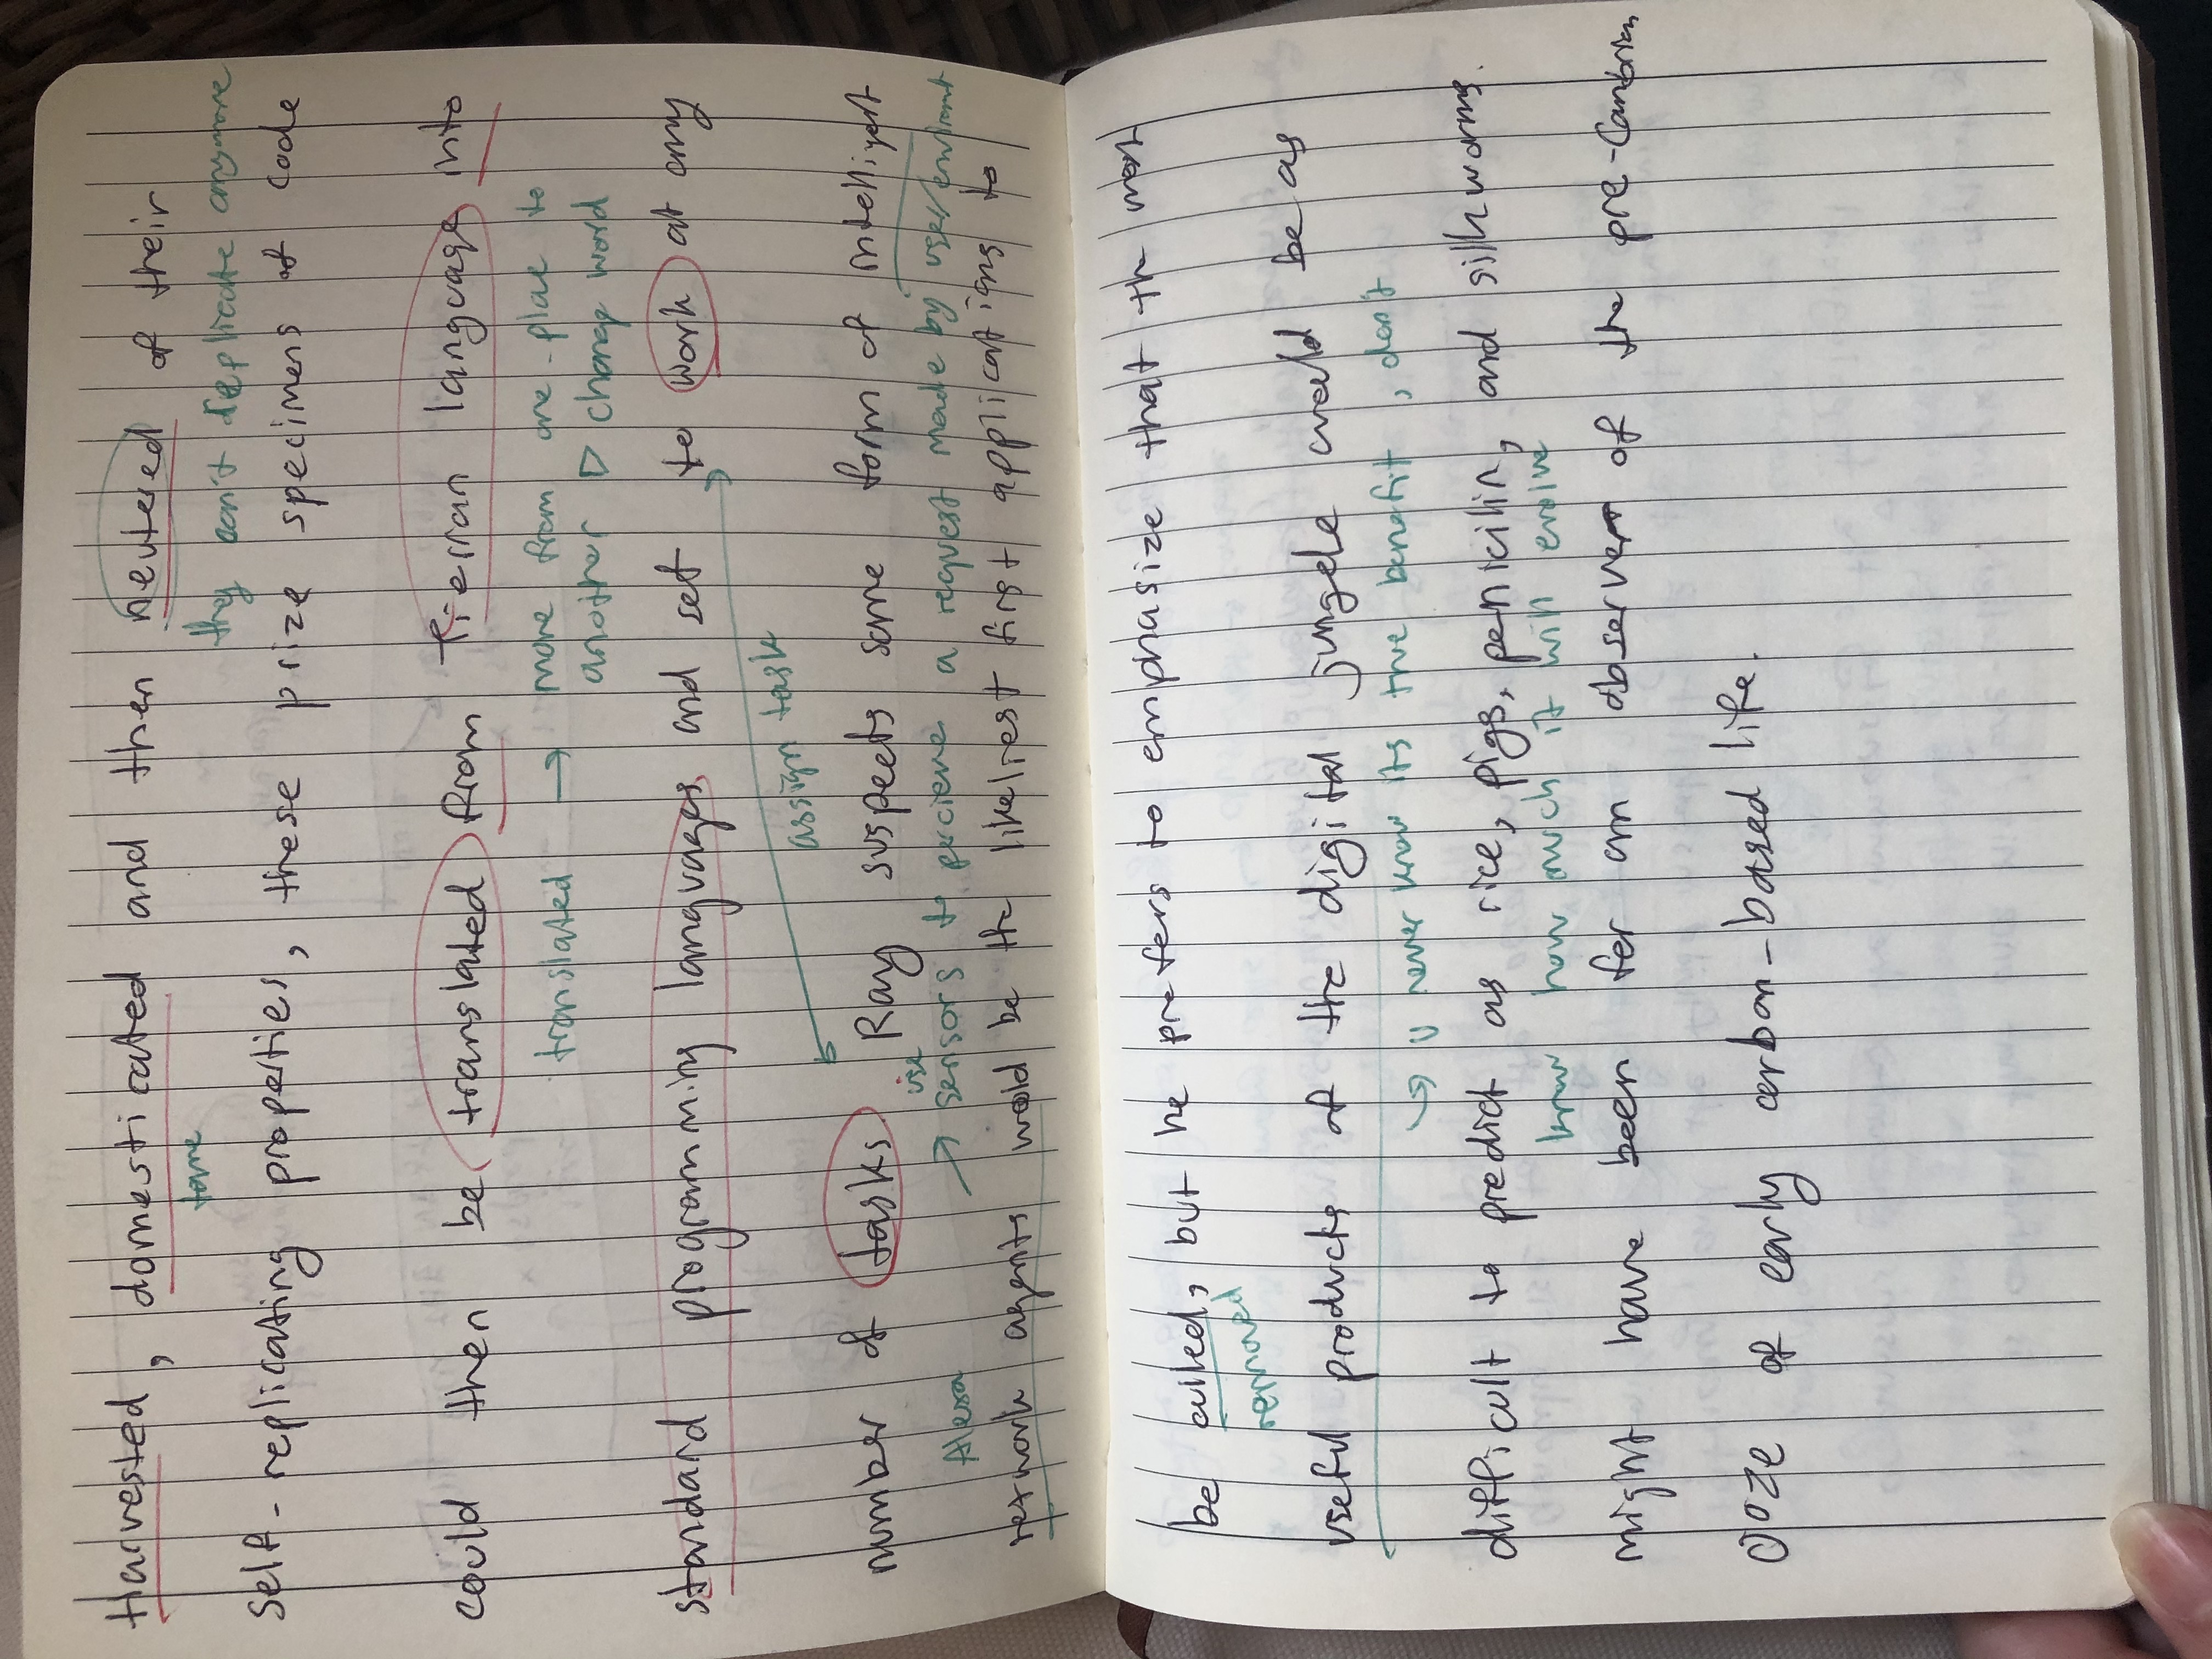 Harvested, domesticated and then neutered of their
tame
they can't replicate anymore
self-replicating properties, these prize specimens of code
could then be translated from Tierran language into
translated → move from one place to
another ▷ change word
standard programming languages and set to work at any
assign task
number of tasks. Ray suspects some form of intelligent
use
Alexa → sensors to percieve a request made by user/
network agents would be the likeliest first applications to
be culled, but he prefers to emphasize that the most
removed
useful products of the digital jungele could be as
↪ u never know its true benefit, don't
difficult to predict as rice, pigs, penicilin, and silkworms.
know how much it will evolve
might have been for an observer of the pre-Cambrian
ooze of early carbon-based life.